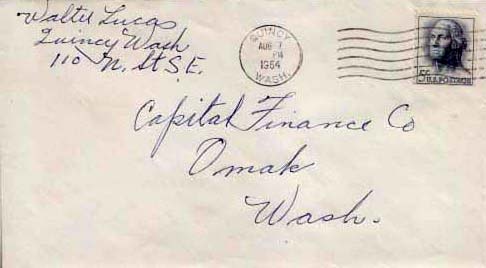 Walter Lucas
Quincy Wash
110 N. St S.E.
QUINCY
AUG 7
PM
1964
WASH.
5¢ U.S. POSTAGE
Capital Finance Co
Omak
Wash.